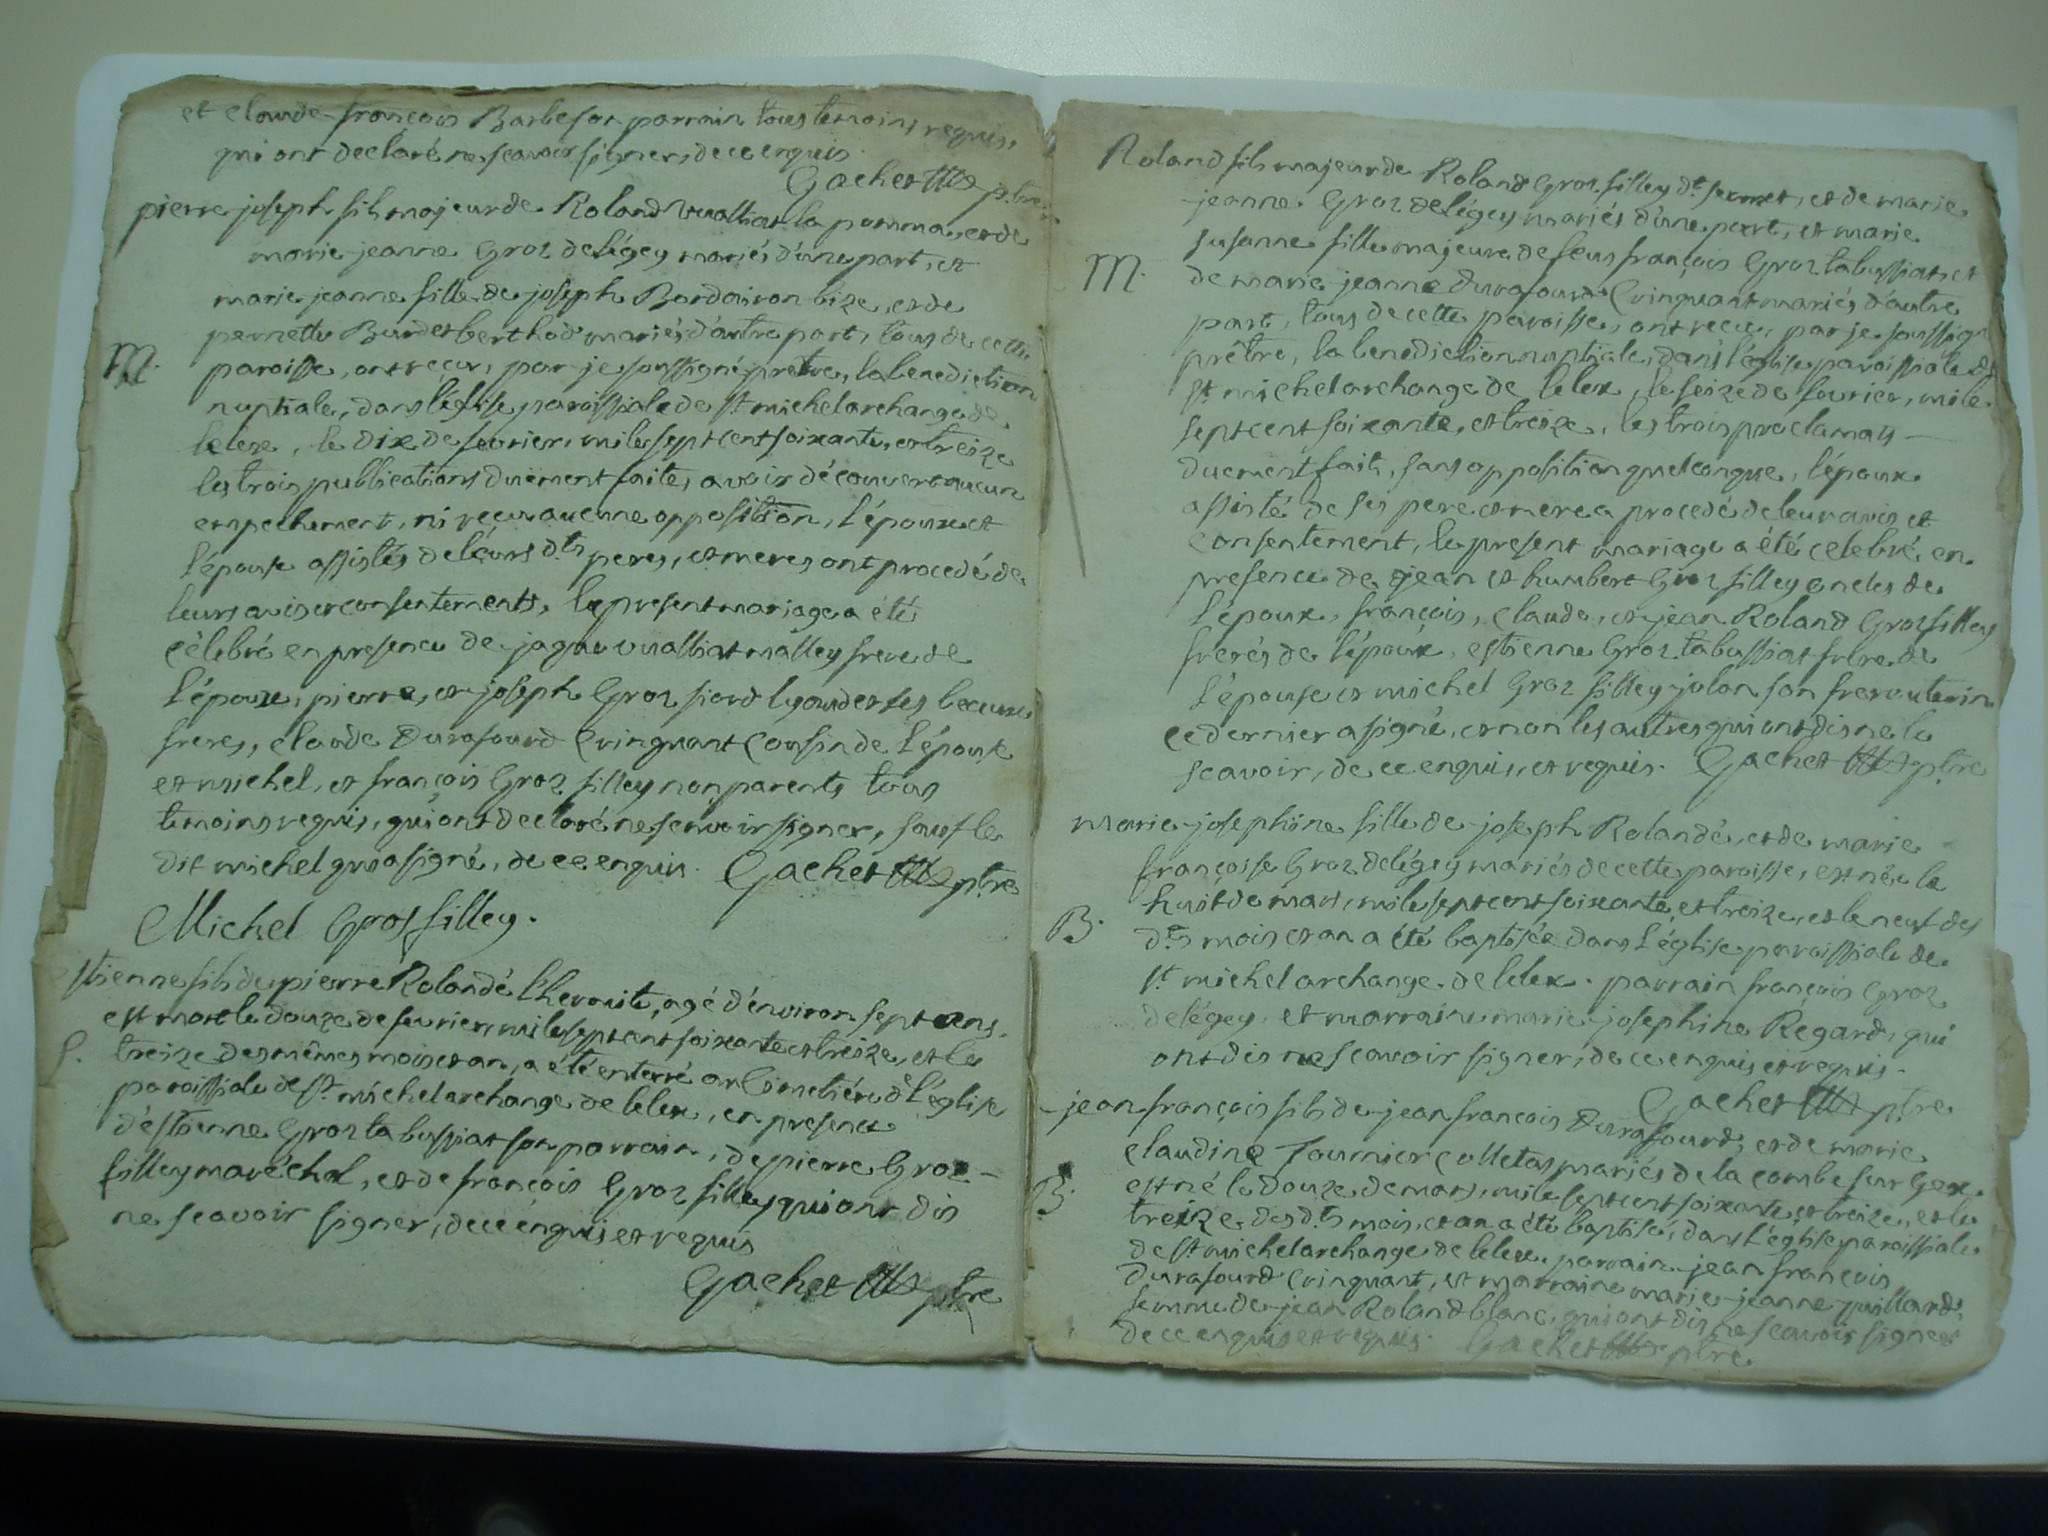 et claude françois Barbesat parrain tous temoins requis,
qui ont declaré ne scavoir signer, de ce enquis
Gachet ptre
pierre joseph fils majeur de Roland vuaillat la pomma, et de
marie jeanne Groz delégey mariés d'une part, et
marie jeanne fille de joseph Bordairon bize, et de
pernette Burdet berthod mariés d'autre part, tous de cette
M. paroisse, ont reçu, par je soussigné prêtre, la benediction
nuptiale, dans l'église paroissiale de st michel archange de
lelex, le dix de fevrier, mile sept cent soixante, et treize
les trois publications duement faites, avoir découvert aucun
empechement, ni reçu aucune opposition, l'époux et
l'épouse assistés de leurs dts peres, et meres ont procedé de
leurs avis et consentements, le present mariage a été
célebré en presence de jaque vuaillat malley frere de
l'époux, pierre, et joseph Groz fiord lyaudet ses beaux
freres, claude Durafourd Cringuant Cousin de l'épouse
et michel, et françois Groz filley non parents tous
temoins requis, qui ont declaré ne scavoir signer, sauf le
dit michel qui a signé, de ce enquis. Gachet ptre
Michel Grosfilley.
stienne fils de pierre Rolandé l'hermite, agé d'environ sept ans,
est mort le douze de fevrier, mile sept cent soixante et treize, et le
S. treize des mêmes mois et an, a été enterré au Cimetiére de l'église
paroissiale de st michel archange de lelex, en presence
d'éstienne Groz tabussiat son parrain, de pierre Groz
filley maréchal, et de françois Groz filley qui ont dis
ne scavoir signer, de ce énquis et requis
Gachet ptre
Roland fils majeur de Roland Groz filley dt sermet, et de marie
jeanne Groz delégey mariés d'une part, et marie
susanne fille majeure de feus françois Groz tabussiat, et
M. de marie jeanne Durafourd Cringuant mariés d'autre
part, tous de cette paroisse, ont reçu, par je soussigné
prêtre, la benediction nuptiale, dans l'église paroissiale de
st michel archange de lelex, le seize de fevrier, mile
sept cent soixante, et treize, les trois proclamats
duement fait, sans opposition quelconque, l'époux
assisté de ses pere et mere a procedé de leur avis et
consentement, le present mariage a été celebré, en
presence de jean et humbert Groz filley oncles de
l'époux, françois, claude, et jean Roland Groz filley
freres de l'époux, estienne Groz tabussiat frere de
l'épouse et michel Groz filley jolon son frere uterin
ce dernier a signé, et non les autres qui ont dis ne le
scavoir, de ce enquis, et requis. Gachet ptre
marie josephine fille de joseph Rolandé, et de marie
françoise Groz delégey mariés de cette paroisse, est née le
huit de mars, mile sept cent soixante, et treize, et le neuf des
B. dts mois et an a été baptisée dans l'église paroissiale de
st michel archange de lelex. parrain françois Groz
delégey, et marraine marie josephine Regard, qui
ont dis ne scavoir signer, de ce enquis et requis.
Gachet ptre
jean françois fils de jean françois Durafourd, et de marie
claudine Tournier colletas mariés de la combe sur Gex,
est né le douze de mars, mile sept cent soixante, et treize, et le
B. treize des dts mois, et an a été baptisé, dans l'église paroissiale
de st michel archange de lelex, parrain jean françois
Durafourd Cringuant, et marraine marie jeanne puillard,
femme de jean Roland blanc, qui ont dis ne scavoir signer
de ce enquis et requis. Gachet ptre